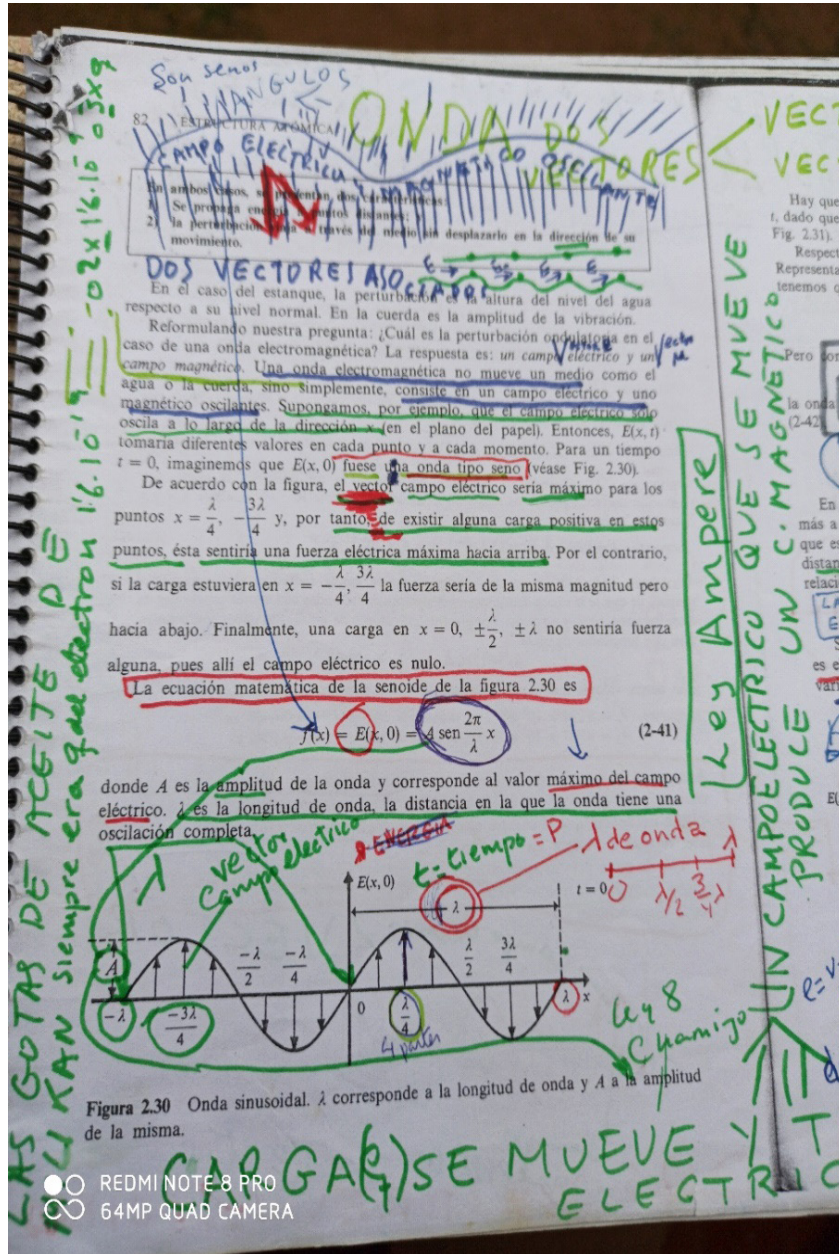 Son senos
ANGULOS
82 ESTRUCTURA ATÓMICA
ONDA DOS
VECTORES
VEC
VEC
CAMPO ELECTRICO Y MAGNETICO OSCILANTE
En ambos casos, se presentan dos características:
1) Se propaga energía a puntos distantes:
2) la perturbación viaja a través del medio sin desplazarlo en la dirección de su
movimiento.
DOS VECTORES ASOCIADOS
En el caso del estanque, la perturbación es la altura del nivel del agua
respecto a su nivel normal. En la cuerda es la amplitud de la vibración.
Reformulando nuestra pregunta: ¿Cuál es la perturbación ondulatoria en el
caso de una onda electromagnética? La respuesta es: un campo eléctrico y un
campo magnético. Una onda electromagnética no mueve un medio como el
agua o la cuerda, sino simplemente, consiste en un campo eléctrico y uno
magnético oscilantes. Supongamos, por ejemplo, que el campo eléctrico sólo
oscila a lo largo de la dirección x (en el plano del papel). Entonces, E(x, t)
tomaría diferentes valores en cada punto y a cada momento. Para un tiempo
t = 0, imaginemos que E(x, 0) fuese una onda tipo seno (véase Fig. 2.30).
De acuerdo con la figura, el vector campo eléctrico sería máximo para los
puntos x = λ/4, -3λ/4 y, por tanto, de existir alguna carga positiva en estos
puntos, ésta sentiría una fuerza eléctrica máxima hacia arriba. Por el contrario,
si la carga estuviera en x = -λ/4, 3λ/4 la fuerza sería de la misma magnitud pero
hacia abajo. Finalmente, una carga en x = 0, ±λ/2, ±λ no sentiría fuerza
alguna, pues allí el campo eléctrico es nulo.
La ecuación matemática de la senoide de la figura 2.30 es
f(x) = E(x, 0) = A sen 2π/λ x (2-41)
donde A es la amplitud de la onda y corresponde al valor máximo del campo
eléctrico. λ es la longitud de onda, la distancia en la que la onda tiene una
oscilación completa.
ENERGIA
vector
campo electrico
t = tiempo = P
λ de onda
0 λ/2 3/4 λ λ
λ
E(x, 0)
λ
t = 0
A
-λ -3λ/4 -λ/2 -λ/4 0 λ/4 λ/2 3λ/4 λ x
4 partes
ley 8
Chamigo
Figura 2.30 Onda sinusoidal. λ corresponde a la longitud de onda y A a la amplitud
de la misma.
CARGA SE MUEVE Y
ELECTRIC
LAS GOTAS DE ACEITE DE
MILIKAN siempre era q del electron 1'6.10-19
Ley Ampere
UN CAMPO ELECTRICO QUE SE MUEVE
PRODUCE UN C. MAGNETICO
Hay que
t, dado que
Fig. 2.31).
Respect
Representa
tenemos
Pero
la onda
(2-42
En
más a
que es
distan
relaci
es e
vari
REDMI NOTE 8 PRO
64MP QUAD CAMERA